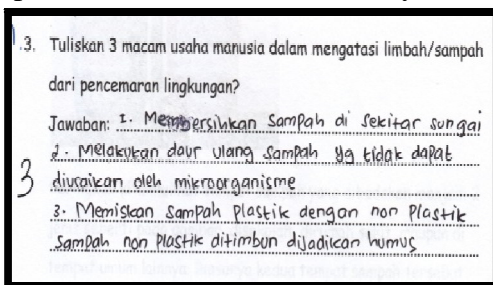 .3. Tuliskan 3 macam usaha manusia dalam mengatasi limbah/sampah
dari pencemaran lingkungan?
Jawaban: 1. Membersihkan sampah di sekitar sungai
2. Melakukan daur ulang sampah yg tidak dapat
3 diuraikan oleh mikroorganisme
3. Memiskan sampah plastik dengan non plastik
sampah non plastik ditimbun dijadikan humus